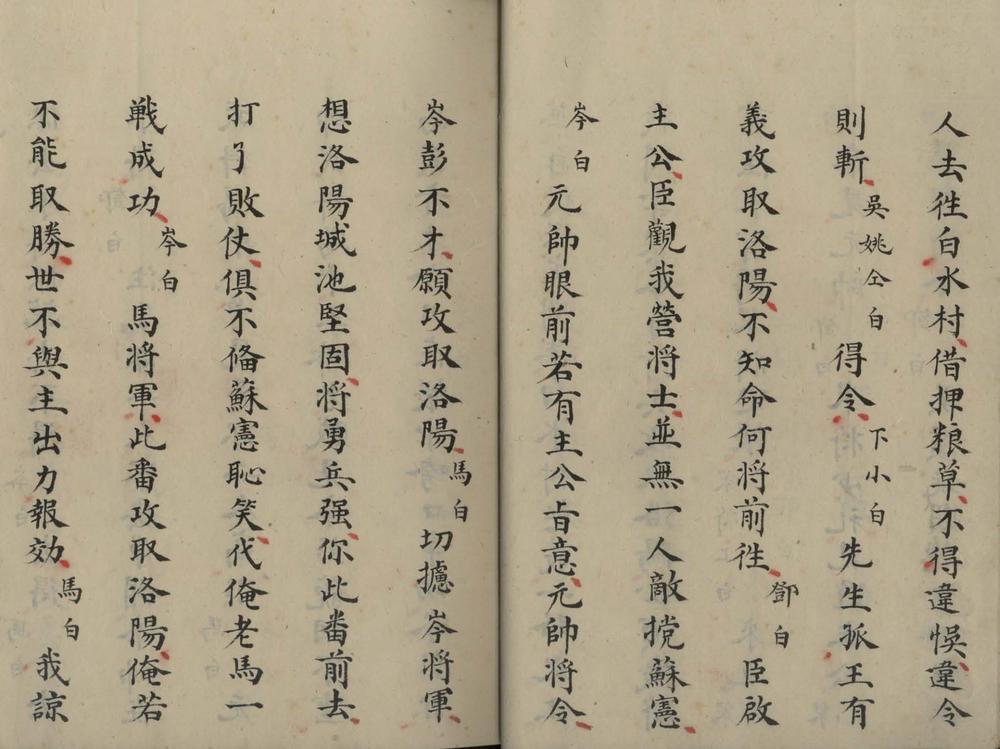 人去徃白水村借押粮草不得違悞違令
則斬吳姚仝白得令下小白先生孤王有
義攻取洛陽不知命何將前徃鄧白臣啟
主公臣觀我營將士並無一人敵搅蘇憲
岑白元帥眼前若有主公㫖意元帥將令
岑彭不才願攻取洛陽馬白切攄岑將軍
想洛陽城池堅固將勇兵强你此番前去
打了敗仗俱不俻蘇憲恥笑代俺老馬一
戦成功岑白馬將軍此番攻取洛陽俺若
不能取勝世不與主出力報効馬白我諒